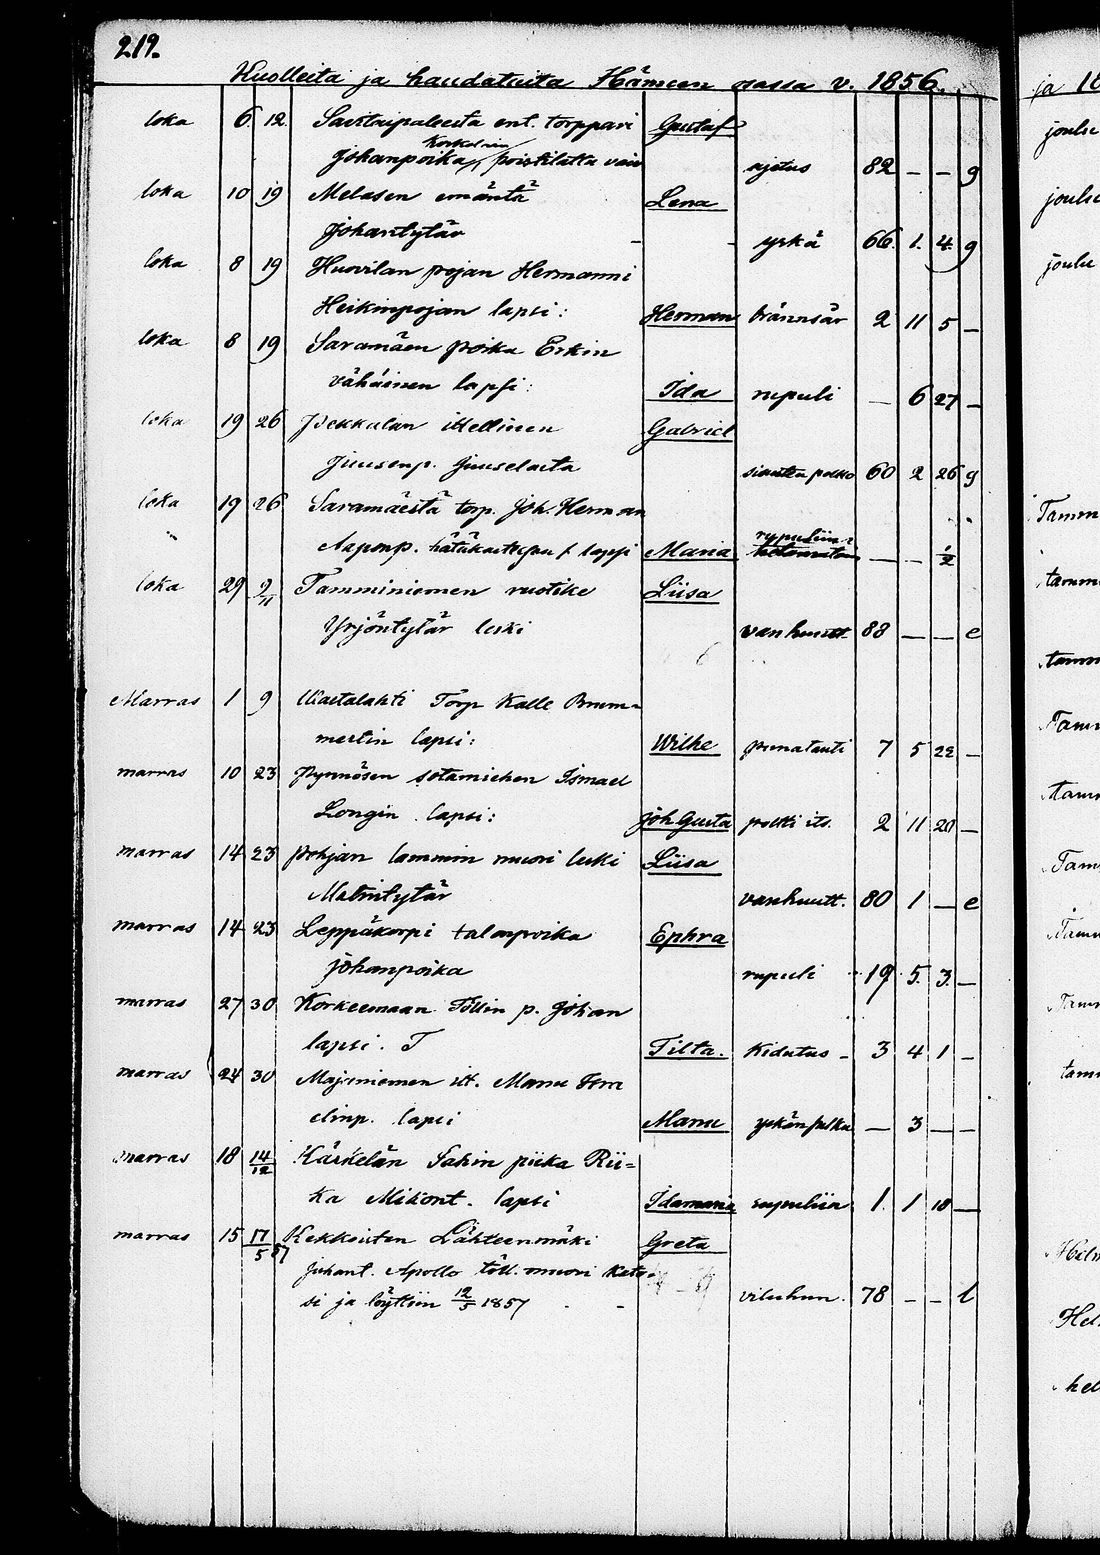 219.
Kuolleita ja haudatuita Hämeen osassa v. 1856.
loka 6. 12. ent. torppari Gustaf
Johanpoika, ajetus 82 – – g
loka 10 19 Melasen emäntä Lena
Johantytär – – yskä 66. 1. 4. g
loka 8 19 Huovilan pojan Hermanni
Heikinpojan lapsi: Herman brännsår 2 11 5 –
loka 8 19 Saramäen poika Erkin
vähäinen lapsi: Ida rupuli – 6 27 –
loka 19 26 Pekkalan itellinen Gabriel
Juusenp. 60 2 26 g
loka 19 26 Saramäestä torp. Joh. Herman
" Aaponp. lapsi Maria – – 1/2
loka 29 9/11 Tamminiemen ruotike Liisa
Yrjöntytär leski vanhuutt. 88 – – e
Marras 1 9 Wastalahti Torp Kalle Brum-
mertin lapsi: Wilhe punatauti 7 5 22 –
marras 10 23 Pynnösen sotamiehen Ismael
Longin lapsi: Joh Gusta 2 11 20 –
marras 14 23 Pohjan lammin muori leski Liisa
Matintytär vanhuutt. 80 1 – e
marras 14 23 Leppäkorpi talonpoika Ephra
Johanpoika rupuli 19 5. 3. –
marras 27 30 Korkeemaan Töllin p. Johan
lapsi. T Tilta. Kidutus – 3 4 1 –
marras 24 30 Majaniemen itt. Manu
lapsi Manu – 3 – –
marras 18 14/12 Kärkelän Sahin piika Rii-
ka Mikont. lapsi Idamaria rupuliin 1. 1 10 –
marras 15 17/5 57 Kekkoisten Lähteenmäki Greta
Juhant. Apollo töll. muori katoi
si ja löyttiin 12/5 1857 – viluhun. 78 – – l
ja 18
joulu
joulu
joulu
Tamm
tamm
tamm
Tamm
Tamm
Tam
Tam
Tam
tam
Helm
Hel
hel